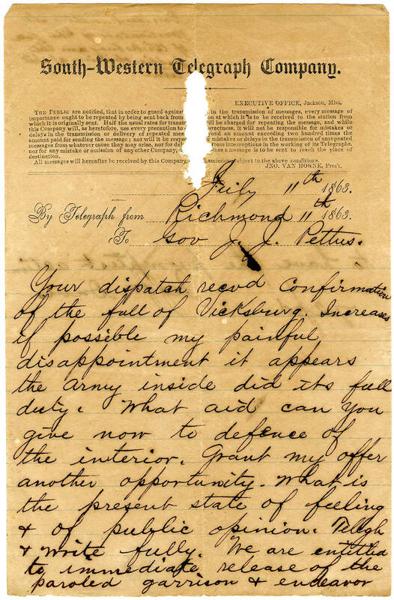 South-Western Telegraph Company.
EXECUTIVE OFFICE, Jackson, Miss.
THE PUBLIC are notified, that in order to guard against in the transmission of messages, every message of
importance ought to be repeated by being sent back from at which it is to be received to the station from
which it is originally sent. Half the usual rates for be charged for repeating the message, and while
this Company will, as heretofore, use every precaution to it will not be responsible for mistakes or
delays in the transmission or delivery of repeated an amount exceeding two hundred times the
amount paid for sending the message; nor will it be mistakes or delays in the transmission of unrepeated
messages from whatever cause they may arise, nor for from interruptions in the working of its Telegraph,
nor for any mistake or omission of any other Company, a message is to be sent to reach the place of
destination.
All messages will hereafter be received by this Company subject to the above conditions.
JNO. VAN HORNE, Pres't.
July 11th 1863.
By Telegraph from Richmond 11th 1863.
To Gov J. J. Pettus.
Your dispatch recvd Confirmation
of the fall of Vicksburg. Increases
If possible my painful
disappointment it appears
the army inside did its full
duty. What aid can you
give now to defence of
the interior. Grant my offer
another opportunity. What is
the present state of feeling
& of public opinion.
& write fully. We are entitled
to immediate release of the
paroled garrison & endeavor